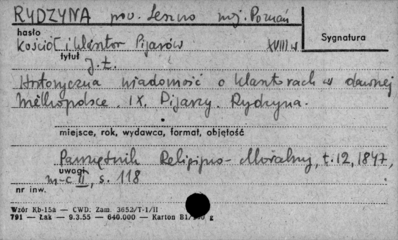 RYDZYNA pow. Leszno woj. Poznań
hasło
Kościół i klasztor Pijarów XVIII w
Sygnatura
tytuł
J. Ł.
Historyczna wiadomość o klasztorach w dawnej
Wielkopolsce. IX. Pijarzy. Rydzyna.
miejsce, rok, wydawca, format, objętość
Pamiętnik Religijno-Moralny, t. 12, 1847,
uwagi
m-c II, s. 118
nr inw.
Wzór Kb-15a — CWD: Zam. 3652/T-1/II
791 — Łak — 9.3.55 — 640.000 — Karton B1/